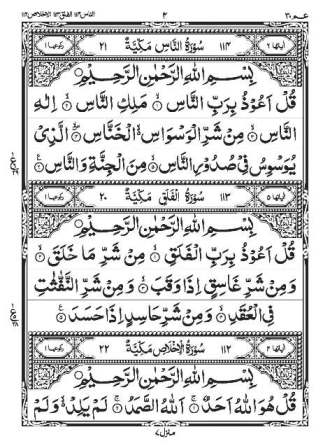 عـم ٣٠ ٢ الناس ١١٤ الفلق ١١٣ الاخلاص ١١٢
اٰیاتہا ٦ ١١٤ سُوْرَةُ النَّاسِ مَكِّيَّةٌ ٢١ رکوعہا ١
بِسْمِ اللّٰهِ الرَّحْمٰنِ الرَّحِيْمِ
قُلْ اَعُوْذُ بِرَبِّ النَّاسِ ۙ مَلِكِ النَّاسِ ۙ اِلٰهِ
النَّاسِ ۙ مِنْ شَرِّ الْوَسْوَاسِ ۙ الْخَنَّاسِ ۙ الَّذِيْ
يُوَسْوِسُ فِيْ صُدُوْرِ النَّاسِ ۙ مِنَ الْجِنَّةِ وَالنَّاسِ ۧ
اٰیاتہا ٥ ١١٣ سُوْرَةُ الْفَلَقِ مَكِّيَّةٌ ٢٠ رکوعہا ١
بِسْمِ اللّٰهِ الرَّحْمٰنِ الرَّحِيْمِ
قُلْ اَعُوْذُ بِرَبِّ الْفَلَقِ ۙ مِنْ شَرِّ مَا خَلَقَ ۙ
وَمِنْ شَرِّ غَاسِقٍ اِذَا وَقَبَ ۙ وَمِنْ شَرِّ النَّفّٰثٰتِ
فِي الْعُقَدِ ۙ وَمِنْ شَرِّ حَاسِدٍ اِذَا حَسَدَ ۧ
اٰیاتہا ٤ ١١٢ سُوْرَةُ الْاِخْلَاصِ مَكِّيَّةٌ ٢٢ رکوعہا ١
بِسْمِ اللّٰهِ الرَّحْمٰنِ الرَّحِيْمِ
قُلْ هُوَ اللّٰهُ اَحَدٌ ۚ اَللّٰهُ الصَّمَدُ ۚ لَمْ يَلِدْ ۙ وَلَمْ
منزل ٧